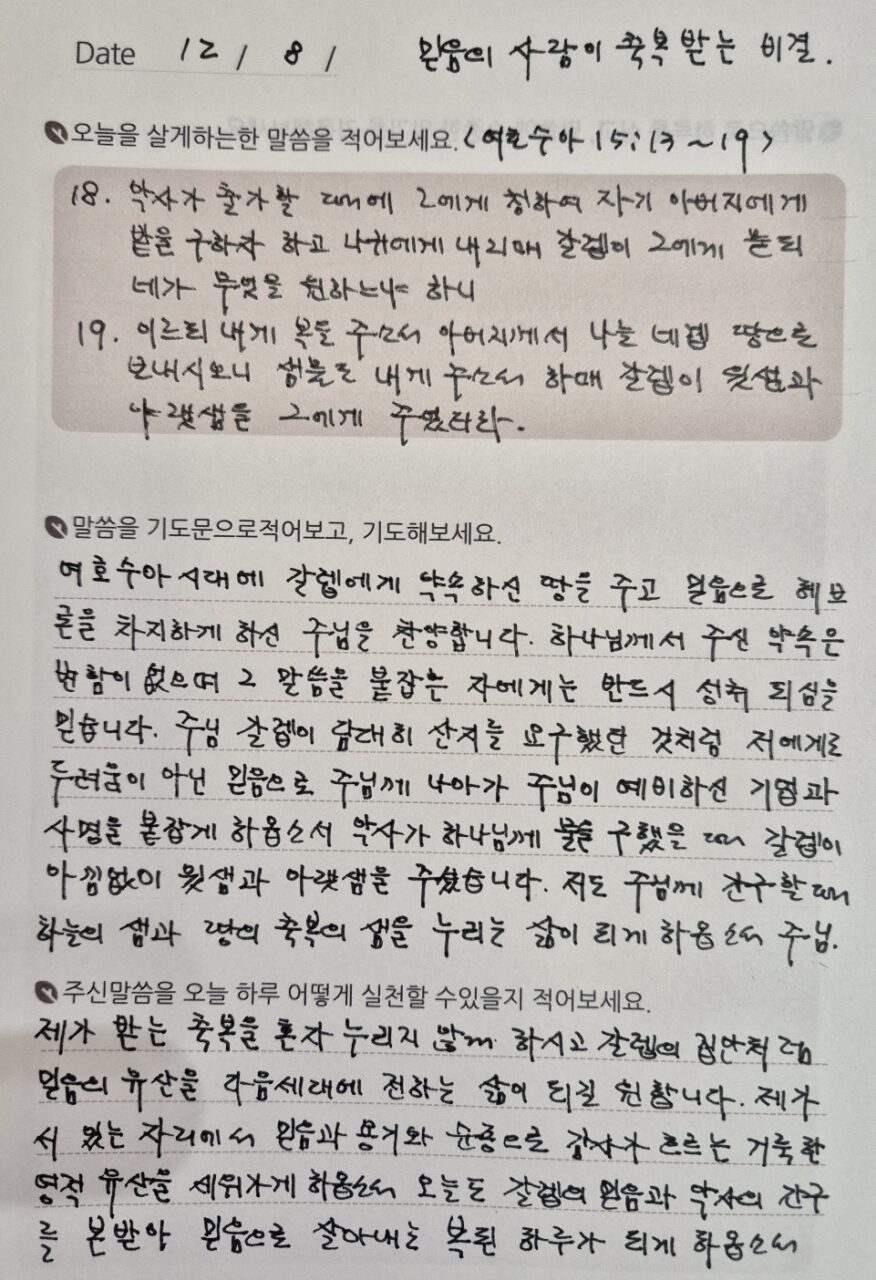 Date 12 / 8 / 믿음의 사람이 축복 받는 비결.
오늘을 살게하는한 말씀을 적어보세요. <여호수아 15:13~19>
18. 악사가 출가할 때에 그에게 청하여 자기 아버지에게
밭을 구하자 하고 나귀에게 내리매 갈렙이 그에게 묻되
네가 무엇을 원하느냐 하니
19. 이르되 내게 복을 주소서 아버지께서 나를 네겝 땅으로
보내시오니 샘물도 내게 주소서 하매 갈렙이 윗샘과
아랫샘을 그에게 주었더라.
말씀을 기도문으로적어보고, 기도해보세요.
여호수아 시대에 갈렙에게 약속하신 땅을 주고 믿음으로 헤브
론을 차지하게 하신 주님을 찬양합니다. 하나님께서 주신 약속은
변함이 없으며 그 말씀을 붙잡는 자에게는 반드시 성취 되심을
믿습니다. 주님 갈렙이 담대히 산지를 요구했던 것처럼 저에게도
두려움이 아닌 믿음으로 주님께 나아가 주님이 예비하신 기업과
사명을 붙잡게 하옵소서 악사가 하나님께 물을 구했을 때 갈렙이
아낌없이 윗샘과 아랫샘을 주셨습니다. 저도 주님께 간구할 때
하늘의 샘과 땅의 축복의 샘을 누리는 삶이 되게 하옵소서 주님.
주신말씀을 오늘 하루 어떻게 실천할 수있을지 적어보세요.
제가 받는 축복을 혼자 누리지 않게 하시고 갈렙의 집안처럼
믿음의 유산을 다음세대에 전하는 삶이 되길 원합니다. 제가
서 있는 자리에서 믿음과 용기와 순종으로 감사가 흐르는 거룩한
영적 유산을 세워가게 하옵소서 오늘도 갈렙의 믿음과 악사의 간구
를 본받아 믿음으로 살아내는 복된 하루가 되게 하옵소서